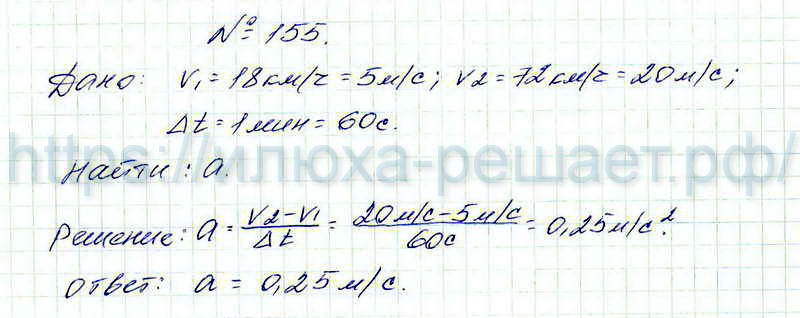 № 155.
Дано: v₁ = 18 км/ч = 5 м/с; v₂ = 72 км/ч = 20 м/с;
Δt = 1 мин = 60 с.
https://илюха-решает.рф/
Найти: a.
Решение: a = (v₂ - v₁)/Δt = (20 м/с - 5 м/с)/60 с = 0,25 м/с².
Ответ: a = 0,25 м/с.